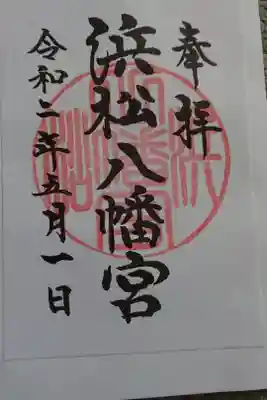 奉拝
浜松八幡宮
令和二年五月一日